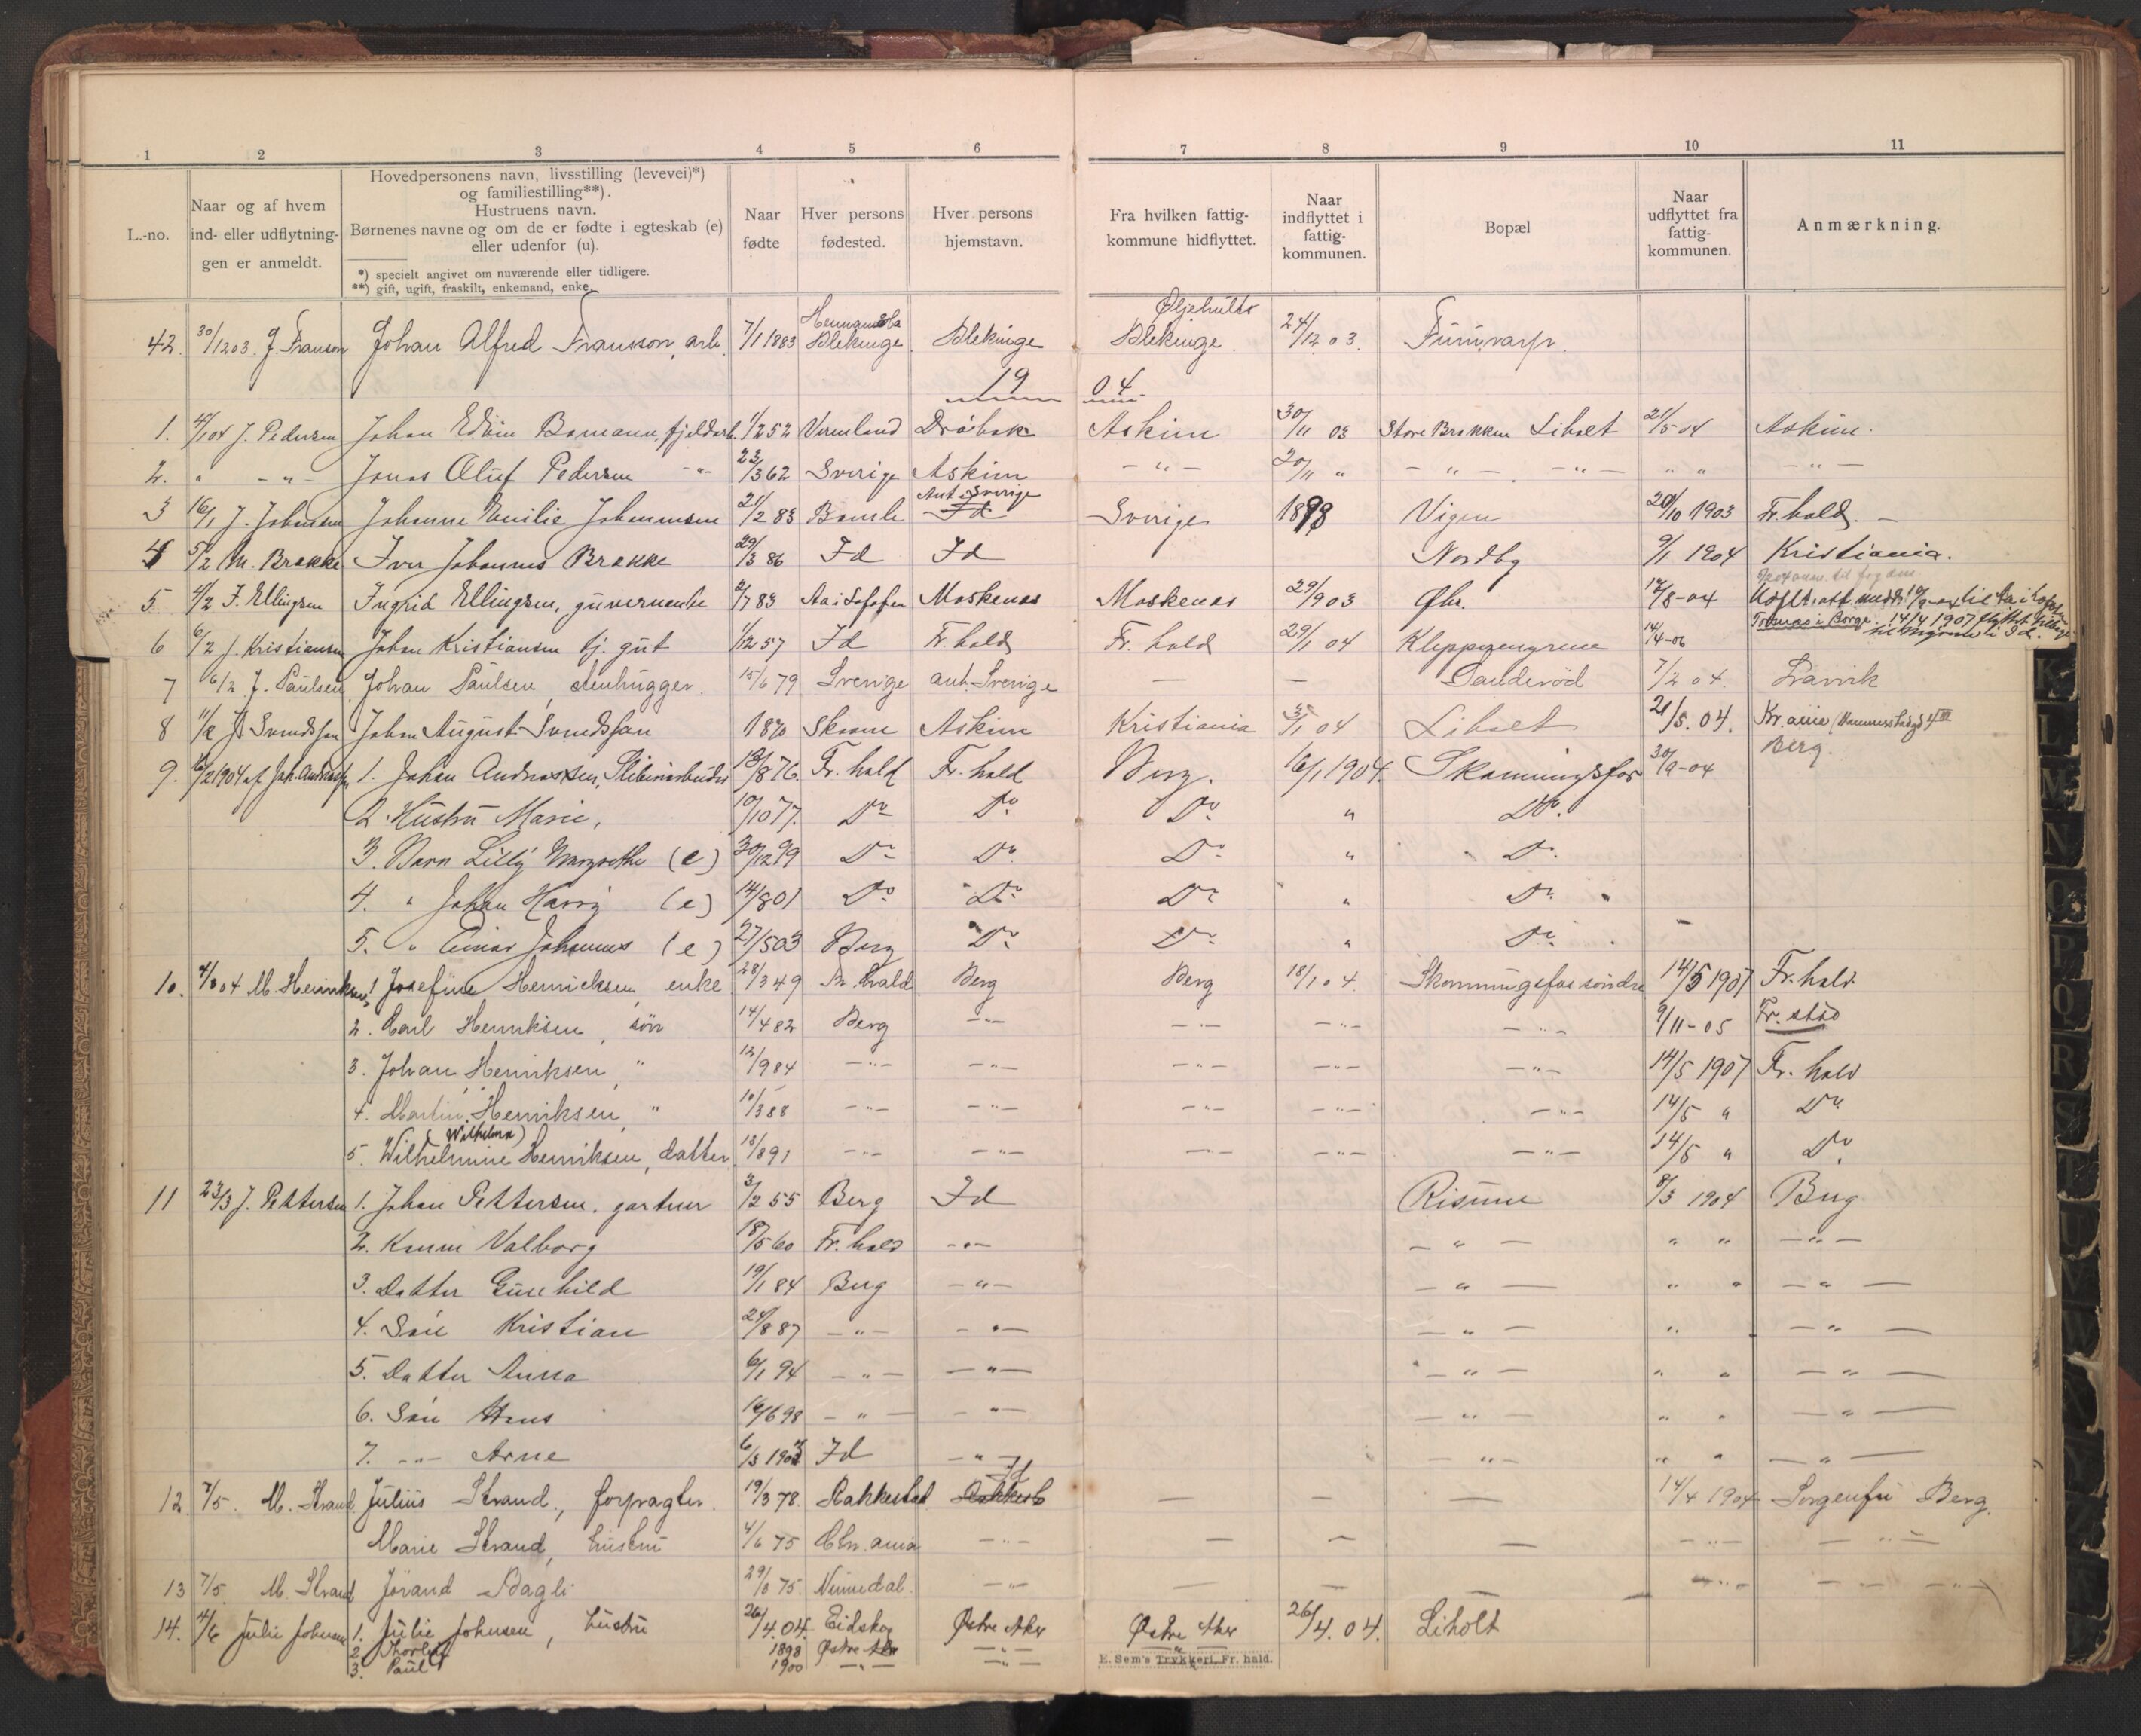 1 2 3 4 5 6 7 8 9 10 11
L.-no.
Naar og af hvem
ind- eller udflytnin-
gen er anmeldt.
Hovedpersonens navn, livsstilling (levevei)*)
og familiestilling**).
Hustruens navn.
Børnenes navne og om de er fødte i egteskab (e)
eller udenfor (u).
*) specielt angivet om nuværende eller tidligere.
**) gift, ugift, fraskilt, enkemand, enke.
Naar
fødte
Hver persons
fødested.
Hver persons
hjemstavn.
Fra hvilken fattig-
kommune hidflyttet.
Naar
indflyttet i
fattig-
kommunen.
Bopæl
Naar
udflyttet fra
fattig-
kommunen.
Anmærkning.
42. 30/12 03 J. Franson Johan Alfred Fransson, arb. 7/1 1883 Blekinge. Blekinge Øljehults Blekinge. 24/12 03.
1904
1. J. Pedersen Johan Edvin Bomann, fjeldarb. 1/2 52 Vermland Drøbak Askim 30/11 03 Store Brekken Liholt 21/5 04 Askim.
2. " - " - Jonas Oluf Pedersen - " - 23/3 62 Sverige Askim - " - 30/11 " - " - - " - " " - " -
3 16/1 J. Johansen Johanne Emilie Johannesen 21/2 83 Bamle Ant. Sverige Id Sverige 1898 Vigen 20/10 1903 Fr.hald. -
4 5/2 M. Brekke Iver Johannes Brekke 29/3 86 Id Id Nordby 9/1 1904 Kristiania.
5. 4/2 I. Ellingsen Ingrid Ellingsen, guvernante 2/7 83 Aa i Lofoten Moskenes Moskenes 29/9 03 Øbr. 12/8-04
Tosnæs i Borge. 14/4 1907 flyttet tilbage
6 6/2 J. Kristiansen Johan Kristiansen tj. gut 1/12 57 Id Fr. hald Fr. hald 29/1 04 14/4-06
7 6/2 J. Paulsen Johan Paulsen, stenhugger. 15/6 79 Sverige ant. Sverige — — Sanderød 7/2 04. Larvik
8 11/2 J. Svendssen Johan August Svendssen 1870 Skaane Askim Kristiania 30/1 04 Liholt 21/5. 04. Kr.ania
9. 16/2 1904 af Joh. Andreassen 1. Johan Andreassen, Sliberiarbeider 13/8 76. Fr. hald Fr. hald Berg. 16/1 1904. Skonningsfos 30/9-04 Berg.
2. Hustru Marie, 10/10 77. Do Do. Do. " Do.
3. Barn Lilly Margrethe (e) 30/12 99 Do Do. Do " Do.
4. " Johan Harry (e) 14/8 01 Do Do Do " Do.
5. " Einar Johannes (e) 27/5 03 Berg Do Do " Do.
10. M. Henriksen 1 Josefine Henricksen, enke 28/3 49 Fr. hald Berg Berg 18/1 04. Skonningsfos søndre 14/5 1907 Fr. hald.
2. Carl Henriksen, søn 14/4 82 Berg - " - - " - - " - - " - 9/11-05 Fr. stad
3. Johan Henriksen, " 12/9 84 - " - - " - - " - - " - - " - 14/5 1907 Fr. hald
4. Martin Henriksen, " 10/3 88 - " - - " - - " - - " - - " - 14/5 " Do
(Wilhelma)
5. Wilhelmine Henriksen, datter. 13/8 91 - " - - " - - " - - " - - " - 14/5 " Do.
11 23/3 J. Pettersen 1. Johan Pettersen, gartner 3/2 55 Berg Id Risum 8/3 1904 Berg
2. Kone Valborg 18/5 60 Fr. hald - " - - " - " " - " -
3. Datter Gunhild 19/1 84 Berg - " - - " - " " - " -
4. Søn Kristian 24/8 87 - " - - " - - " - " - " -
5. Datter Anna 6/1 94 - " - - " - - " - " " - " -
6. Søn Hans 16/6 98 - " - - " - - " - " " - " -
7. - " - Arne 6/3 1903 Id - " - - " - " " - " -
12. 7/5. M. Strand Julius Strand, forpagter. 19/3 78. Rakkestad Id — — — 14/4 1904 Sorgenfri Berg.
Marie Strand, hustru 4/6 75 Chr.ania - " - — — — - " - - " -
13 7/5 M. Strand Jørand Bagli 29/8 75 Numedal. - " - — — — - " - - " -
14. 4/6 Julie Johnsen 1. Julie Johnsen, hustru 26/4. 04. Eidskog Østre Aker Østre Aker 26/4. 04. Liholt
2. Thorleif 1898 Østre Aker - " - - " -
3. Paul 1900 - " - - " -
E. Sem's Trykkeri, Fr. hald.
K L M N O P Q R S T U V W